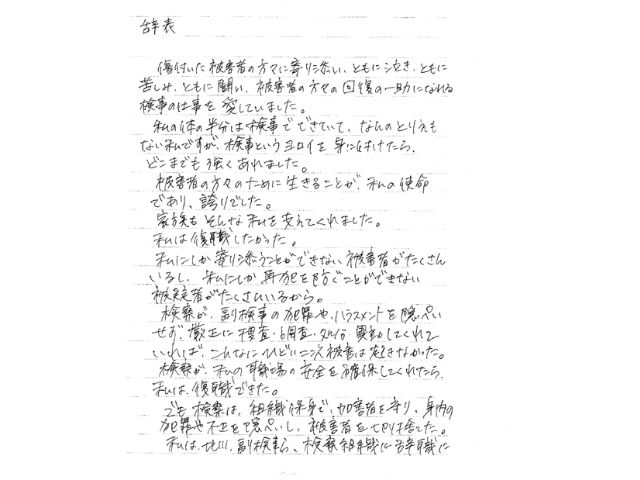 辞表
傷付いた被害者の方々に寄り添い、ともに泣き、ともに
苦しみ、ともに闘い、被害者の方々の回復の一助になれる
検事の仕事を愛していました。
私の体の半分は検事でできていて、なんのとりえも
ない私ですが、検事というヨロイを身に付けたら、
どこまでも強くあれました。
被害者の方々のために生きることが、私の使命
であり、誇りでした。
家族もそんな私を支えてくれました。
私は復職したかった。
私にしか寄り添うことができない被害者がたくさん
いるし、私にしか再犯を防ぐことができない
被疑者がたくさんいるから。
検察が、副検事の犯罪やハラスメントを隠ぺい
せず、厳正に捜査・調査・処分・異動してくれて
いれば、こんなにひどい二次被害は起きなかった。
検察が、私の職場の安全を確保してくれたら、
私は、復職できた。
でも検察は、組織保身で、加害者を守り、身内の
犯罪や不正を隠ぺいし、被害者を切り捨てた。
私は、北川、副検事ら、検察組織に辞職に